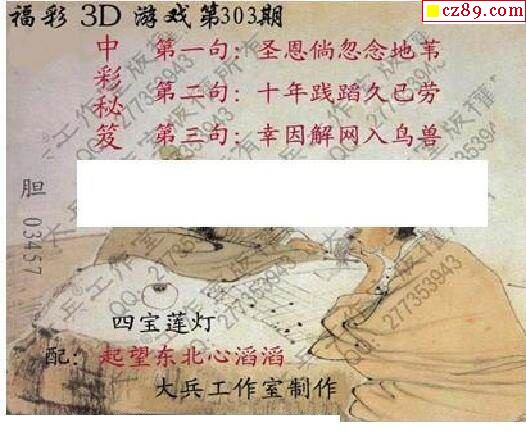 cz89.com
福彩 3D 游戏第303期
中彩秘笈
第一句：圣恩倘忽念地苇
第二句：十年践蹈久已劳
第三句：幸因解网入鸟兽
胆 03457
四宝莲灯
配：起望东北心滔滔
大兵工作室制作
大兵工作室版权所有
QQ:277353943